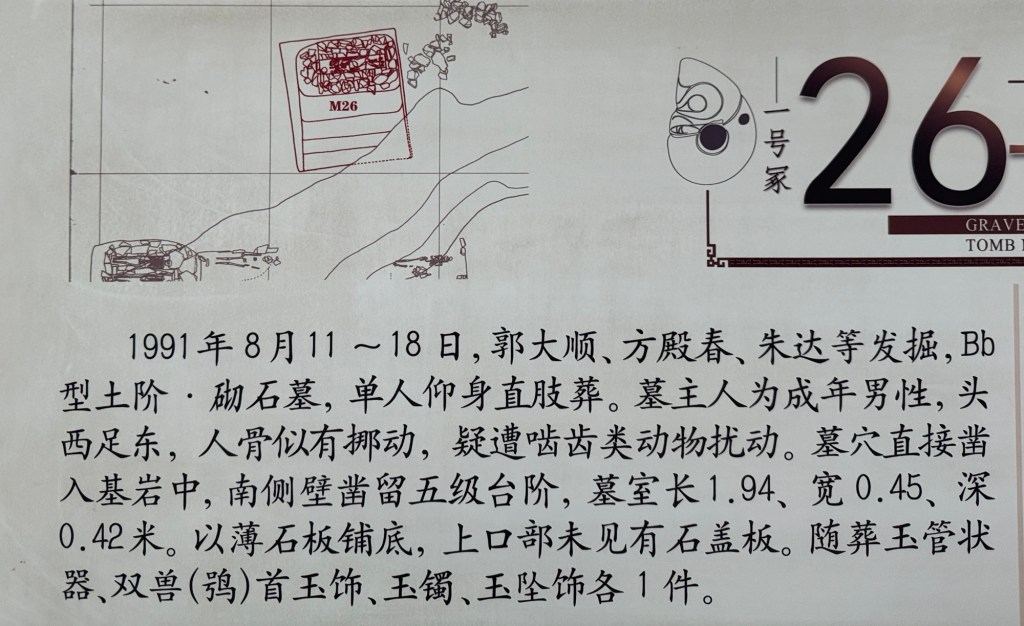 M26
一号冢
26
GRAVE
TOMB
1991年8月11～18日,郭大顺、方殿春、朱达等发掘,Bb
型土阶·砌石墓,单人仰身直肢葬。墓主人为成年男性,头
西足东,人骨似有挪动,疑遭啮齿类动物扰动。墓穴直接凿
入基岩中,南侧壁凿留五级台阶,墓室长1.94、宽0.45、深
0.42米。以薄石板铺底,上口部未见有石盖板。随葬玉管状
器、双兽(鸮)首玉饰、玉镯、玉坠饰各1件。